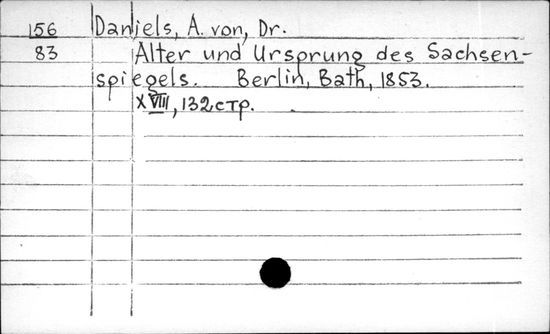 156 Daniels, A. von, Dr.
83 Alter und Ursprung des Sachsen-
spiegels. Berlin, Bath, 1853.
XVIII, 132 стр.